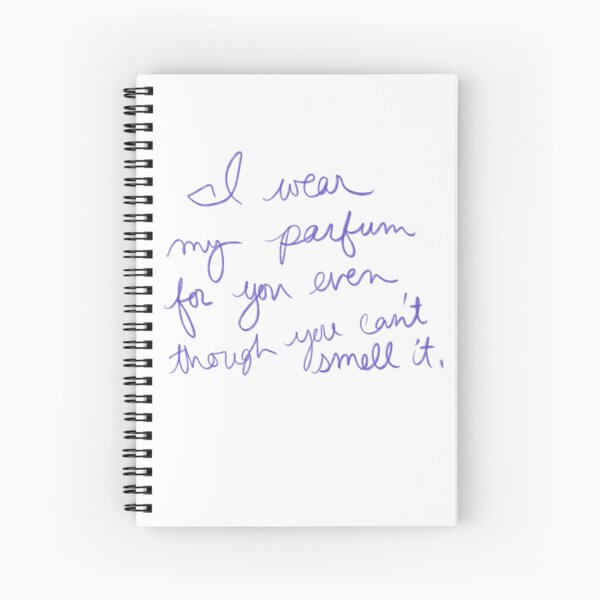 I wear
my parfum
for you even
though you can't
smell it.